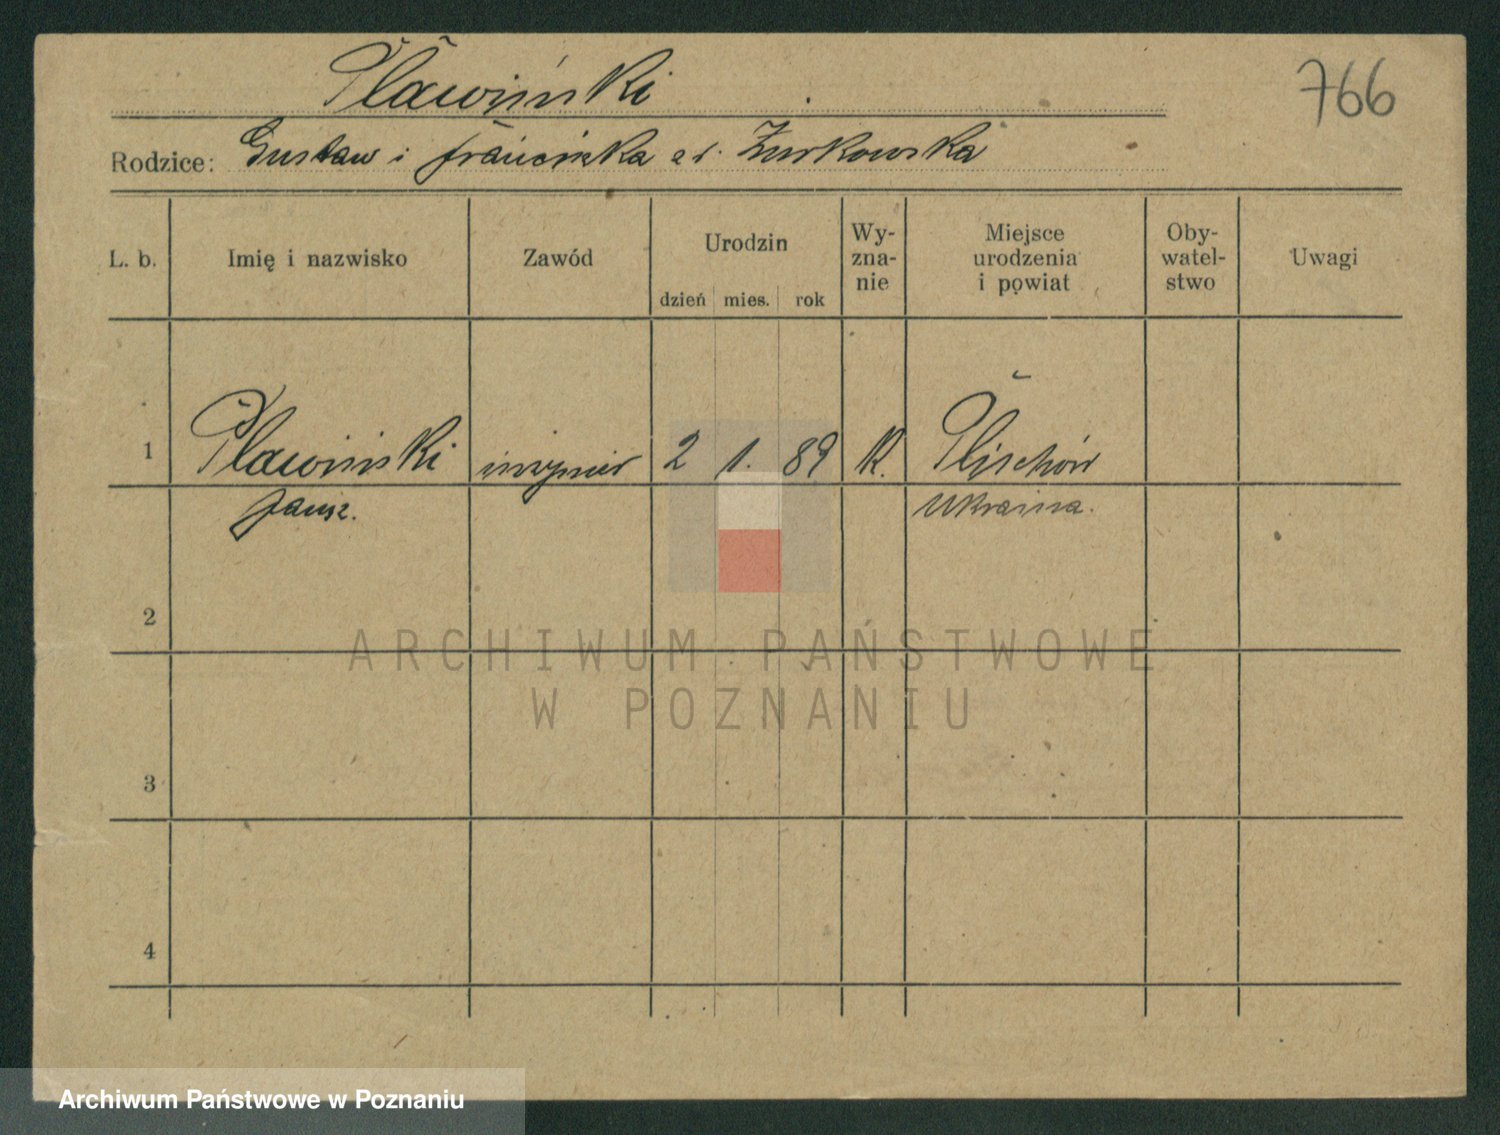 Pławiński
766
Rodzice: Gustaw i Franciszka z d. Żurkowska
L. b. Imię i nazwisko Zawód Urodzin dzień mies. rok Wy-zna-nie Miejsce urodzenia i powiat Oby-watel-stwo Uwagi
1 Pławiński inżynier 2 1. 89 R.
Janusz. Ukraina.
2
ARCHIWUM PAŃSTWOWE
W POZNANIU
3
4
Archiwum Państwowe w Poznaniu